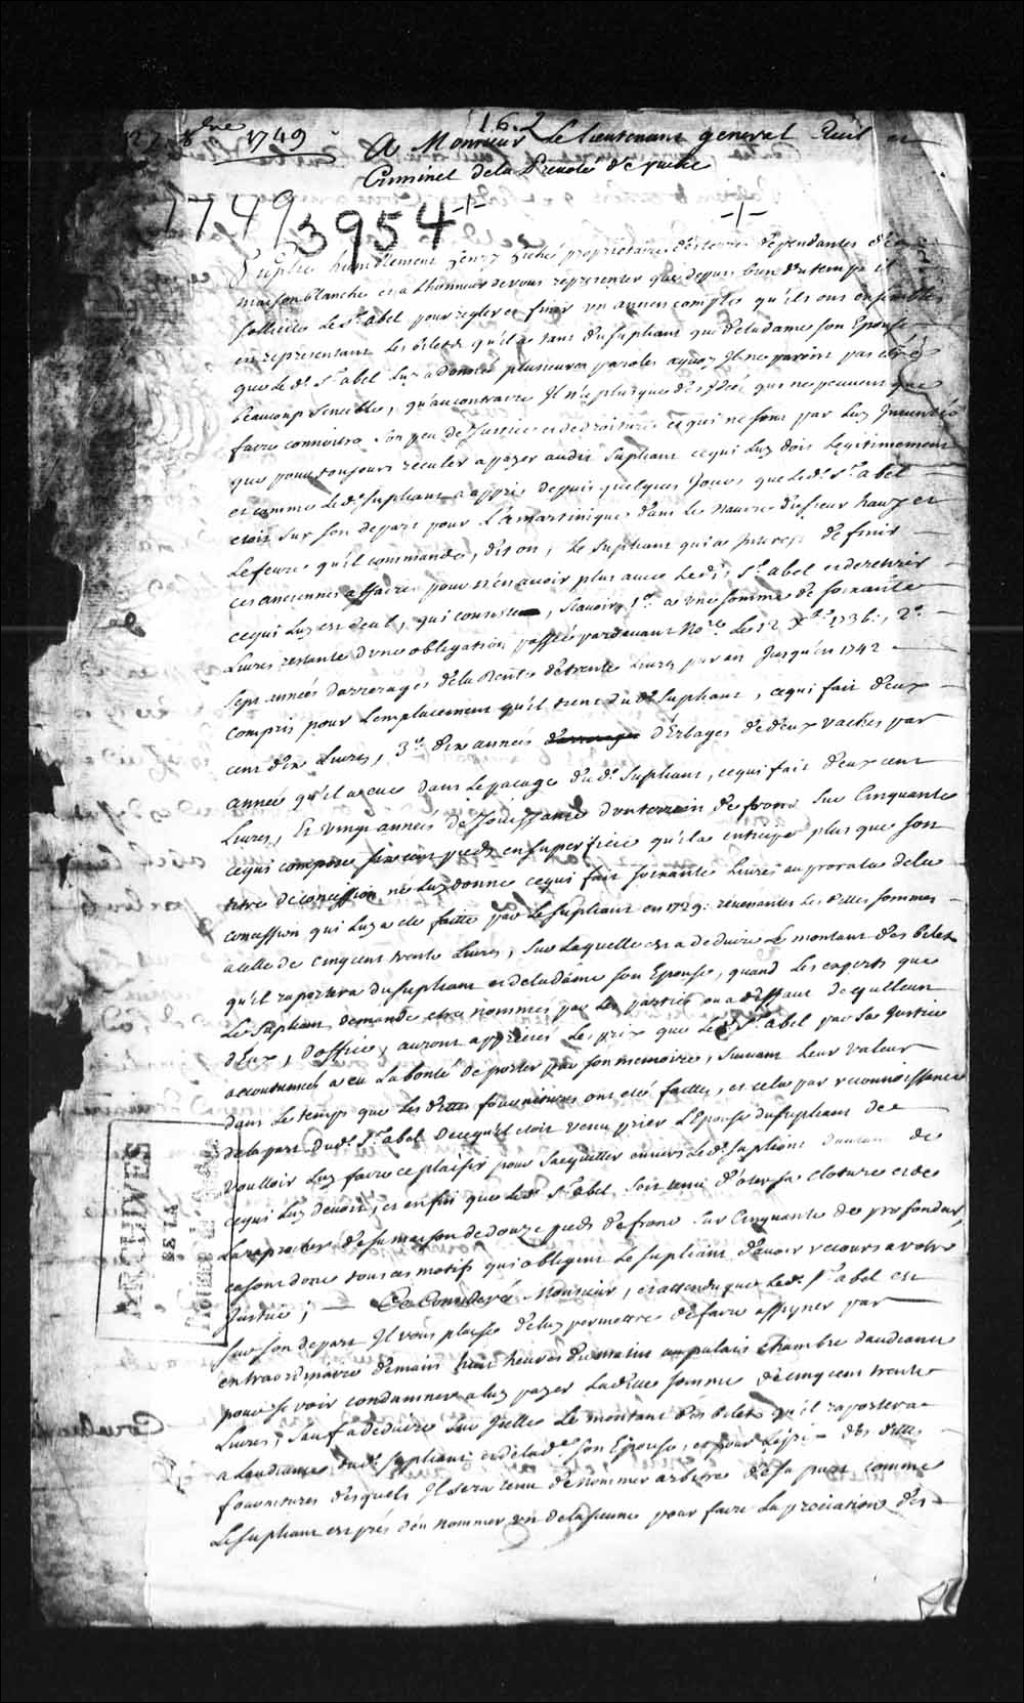 27 8bre 1749
16.2
A Monsieur Le lieutenant general Civil et
Criminel de la Prevoté de quebec
1749 3954
Suplie humblement hiché proprietaire des terres dependantes de
maison blanche et a L'honneur de vous representer que depuis bien du temps il
sollicite Le Sr. abel pour regler et finir un ancien compte qu'ils ont ensemble
en representant les billets qu'il a tant du supliant que de la dame son Epouse
que le dt. Sr. abel luy a donné plusieures paroles ausquels Il ne paroist pas estre
beaucoup sensible, qu'au contraire Il n'a plus que des Idées qui ne peuvent que
faire connoitre son peu de Justice et de droiture et qui ne sont par luy Inventées
que pour toujours reculer a payer audit Supliant ce qui luy doit legitimement
et comme le dt. supliant a appris depuis quelques Jours que le dt. Sr. abel
etoit sur son depart pour L'amartinique dans le navire du sieur hauy et
Lefevre qu'il commande, dit on, Le supliant qui a Interest de finir
ces anciennes affaires pour n'en avoir plus avec le dt. Sr. abel et de retirer
ce qui luy est deub, qui consiste, Scavoir, 1o. a une somme de soixante
Livres restante d'une obligation passée pardevant Nore. Le 12 Xbre 1736., 2o.
sept années darrerages de la Rente de trente Livres par an Jusqu'en 1742
compris pour L'emplacement qu'il tient du dt. Supliant, ce qui fait deux
cent dix Livres, 3o. dix années d'Erbages de deux vaches par
année qu'il a eue dans le pacage du dt. Supliant, ce qui fait deux cent
Livres, Et vingt années de Jouissance d'un terrein de front sur Cinquante
ce qui compose six cent pieds en superficie qu'il a entrepris plus que son
titre de concession ne luy donne ce qui fait soixante Livres au prorata de la
concession qui luy a eté faitte par le supliant en 1729. revenantes les dittes sommes
a celle de cinq cent trente Livres, sur laquelle est a deduire le montant des billets
qu'il raportera du supliant et de la dame son Epouse, quand les experts que
le supliant demande etre nommés par les parties ou a deffaut de quelleun
d'Eux, d'office, auront appretiés les prix que le dt. Sr. abel par sa Justice
accoutumée a eu la bonté de porter par son memoire, suivant leur valeur
dans le temps que les dittes fournitures ont eté faittes, et cela par reconnoissance
de la part du dt. Sr. abel de ce qu'il etoit venu prier L'Epouse du supliant de
voulloir luy faire ce plaisir pour s'acquitter envers le dt. supliant de
ce qui luy devoit, et enfin que le dt. Sr. abel soit tenu d'oter sa cloture et de
la raprocher de sa maison de douze pieds de front sur Cinquante de profondeur,
ce sont donc tous ces motifs qui obligent Le Supliant d'avoir recours a votre
Justice; Ce Consideré Monsieur, et attendu que le dt. Sr. abel est
sur son depart Il vous plaise de luy permettre de faire assigner par
extraordinaire demain huit heures du matin au palais chambre daudiance
pour se voir condamner a luy payer ladite somme de cinq cent trente
Livres, sauf a deduire sur Icelle Le montant des billets qu'il raportera
a Laudiance du dt. Supliant et de lad. son Epouse, et pour des dittes
fournitures desquels Il sera tenu de nommer arbitre de sa part comme
Le supliant est prés d'en nommer un de la sienne pour faire La prociation des
ARCHIVES
DE LA
PROVINCE DE QUEBEC